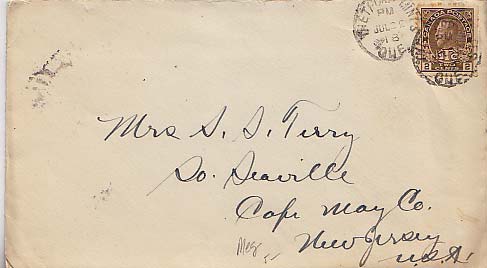 PM
JUL 2
18
QUE.
CANADA POSTAGE
PM
QUE
Mrs S. S. Terry
So. Seaville
Cape May Co.
New Jersey
U.S.A.